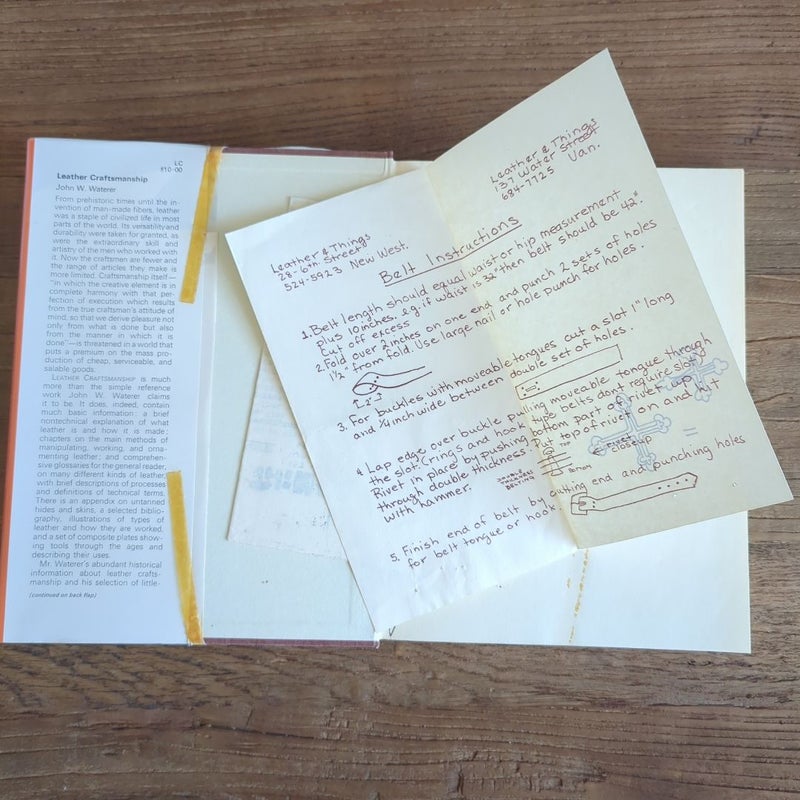 LC
$10.00
Leather Craftsmanship
John W. Waterer
From prehistoric times until the in-
vention of man-made fibers, leather
was a staple of civilized life in most
parts of the world. Its versatility and
durability were taken for granted, as
were the extraordinary skill and
artistry of the men who worked with
it. Now the craftsmen are fewer and
the range of articles they make is
more limited. Craftsmanship itself—
"in which the creative element is in
complete harmony with that per-
fection of execution which results
from the true craftsman's attitude of
mind, so that we derive pleasure not
only from what is done but also
from the manner in which it is
done"—is threatened in a world that
puts a premium on the mass pro-
duction of cheap, serviceable, and
salable goods.
LEATHER CRAFTSMANSHIP is much
more than the simple reference
work John W. Waterer claims
it to be. It does, indeed, contain
much basic information: a brief
nontechnical explanation of what
leather is and how it is made;
chapters on the main methods of
manipulating, working, and orna-
menting leather; and comprehen-
sive glossaries for the general reader,
on many different kinds of leather,
with brief descriptions of processes
and definitions of technical terms.
There is an appendix on untanned
hides and skins, a selected biblio-
graphy, illustrations of types of
leather and how they are worked,
and a set of composite plates show-
ing tools through the ages and
describing their uses.
Mr. Waterer's abundant historical
information about leather crafts-
manship and his selection of little-
(continued on back flap)
Leather & Things
28-6th. Street
524-5923 New West.
Leather & Things
137 Water Street
684-7725 Van.
Belt Instructions
1. Belt length should equal waist or hip measurement
plus 10 inches. e.g. if waist is 32" then belt should be 42".
Cut off excess
2. Fold over 2 inches on one end and punch 2 sets of holes
1½" from fold. Use large nail or hole punch for holes.
2"
3. For buckles with moveable tongues cut a slot 1" long
and ¼ inch wide between double set of holes.
4. Lap edge over buckle pulling moveable tongue through
the slot. (rings and hook type belts dont require slot)
Rivet in place by pushing bottom part of rivet up
through double thickness. Put top of rivet on and hit
with hammer.
DOUBLE
THICKNESS
BELTING
TOP
BOTTOM
RIVET
closeup
5. Finish end of belt by cutting end and punching holes
for belt tongue or hook.